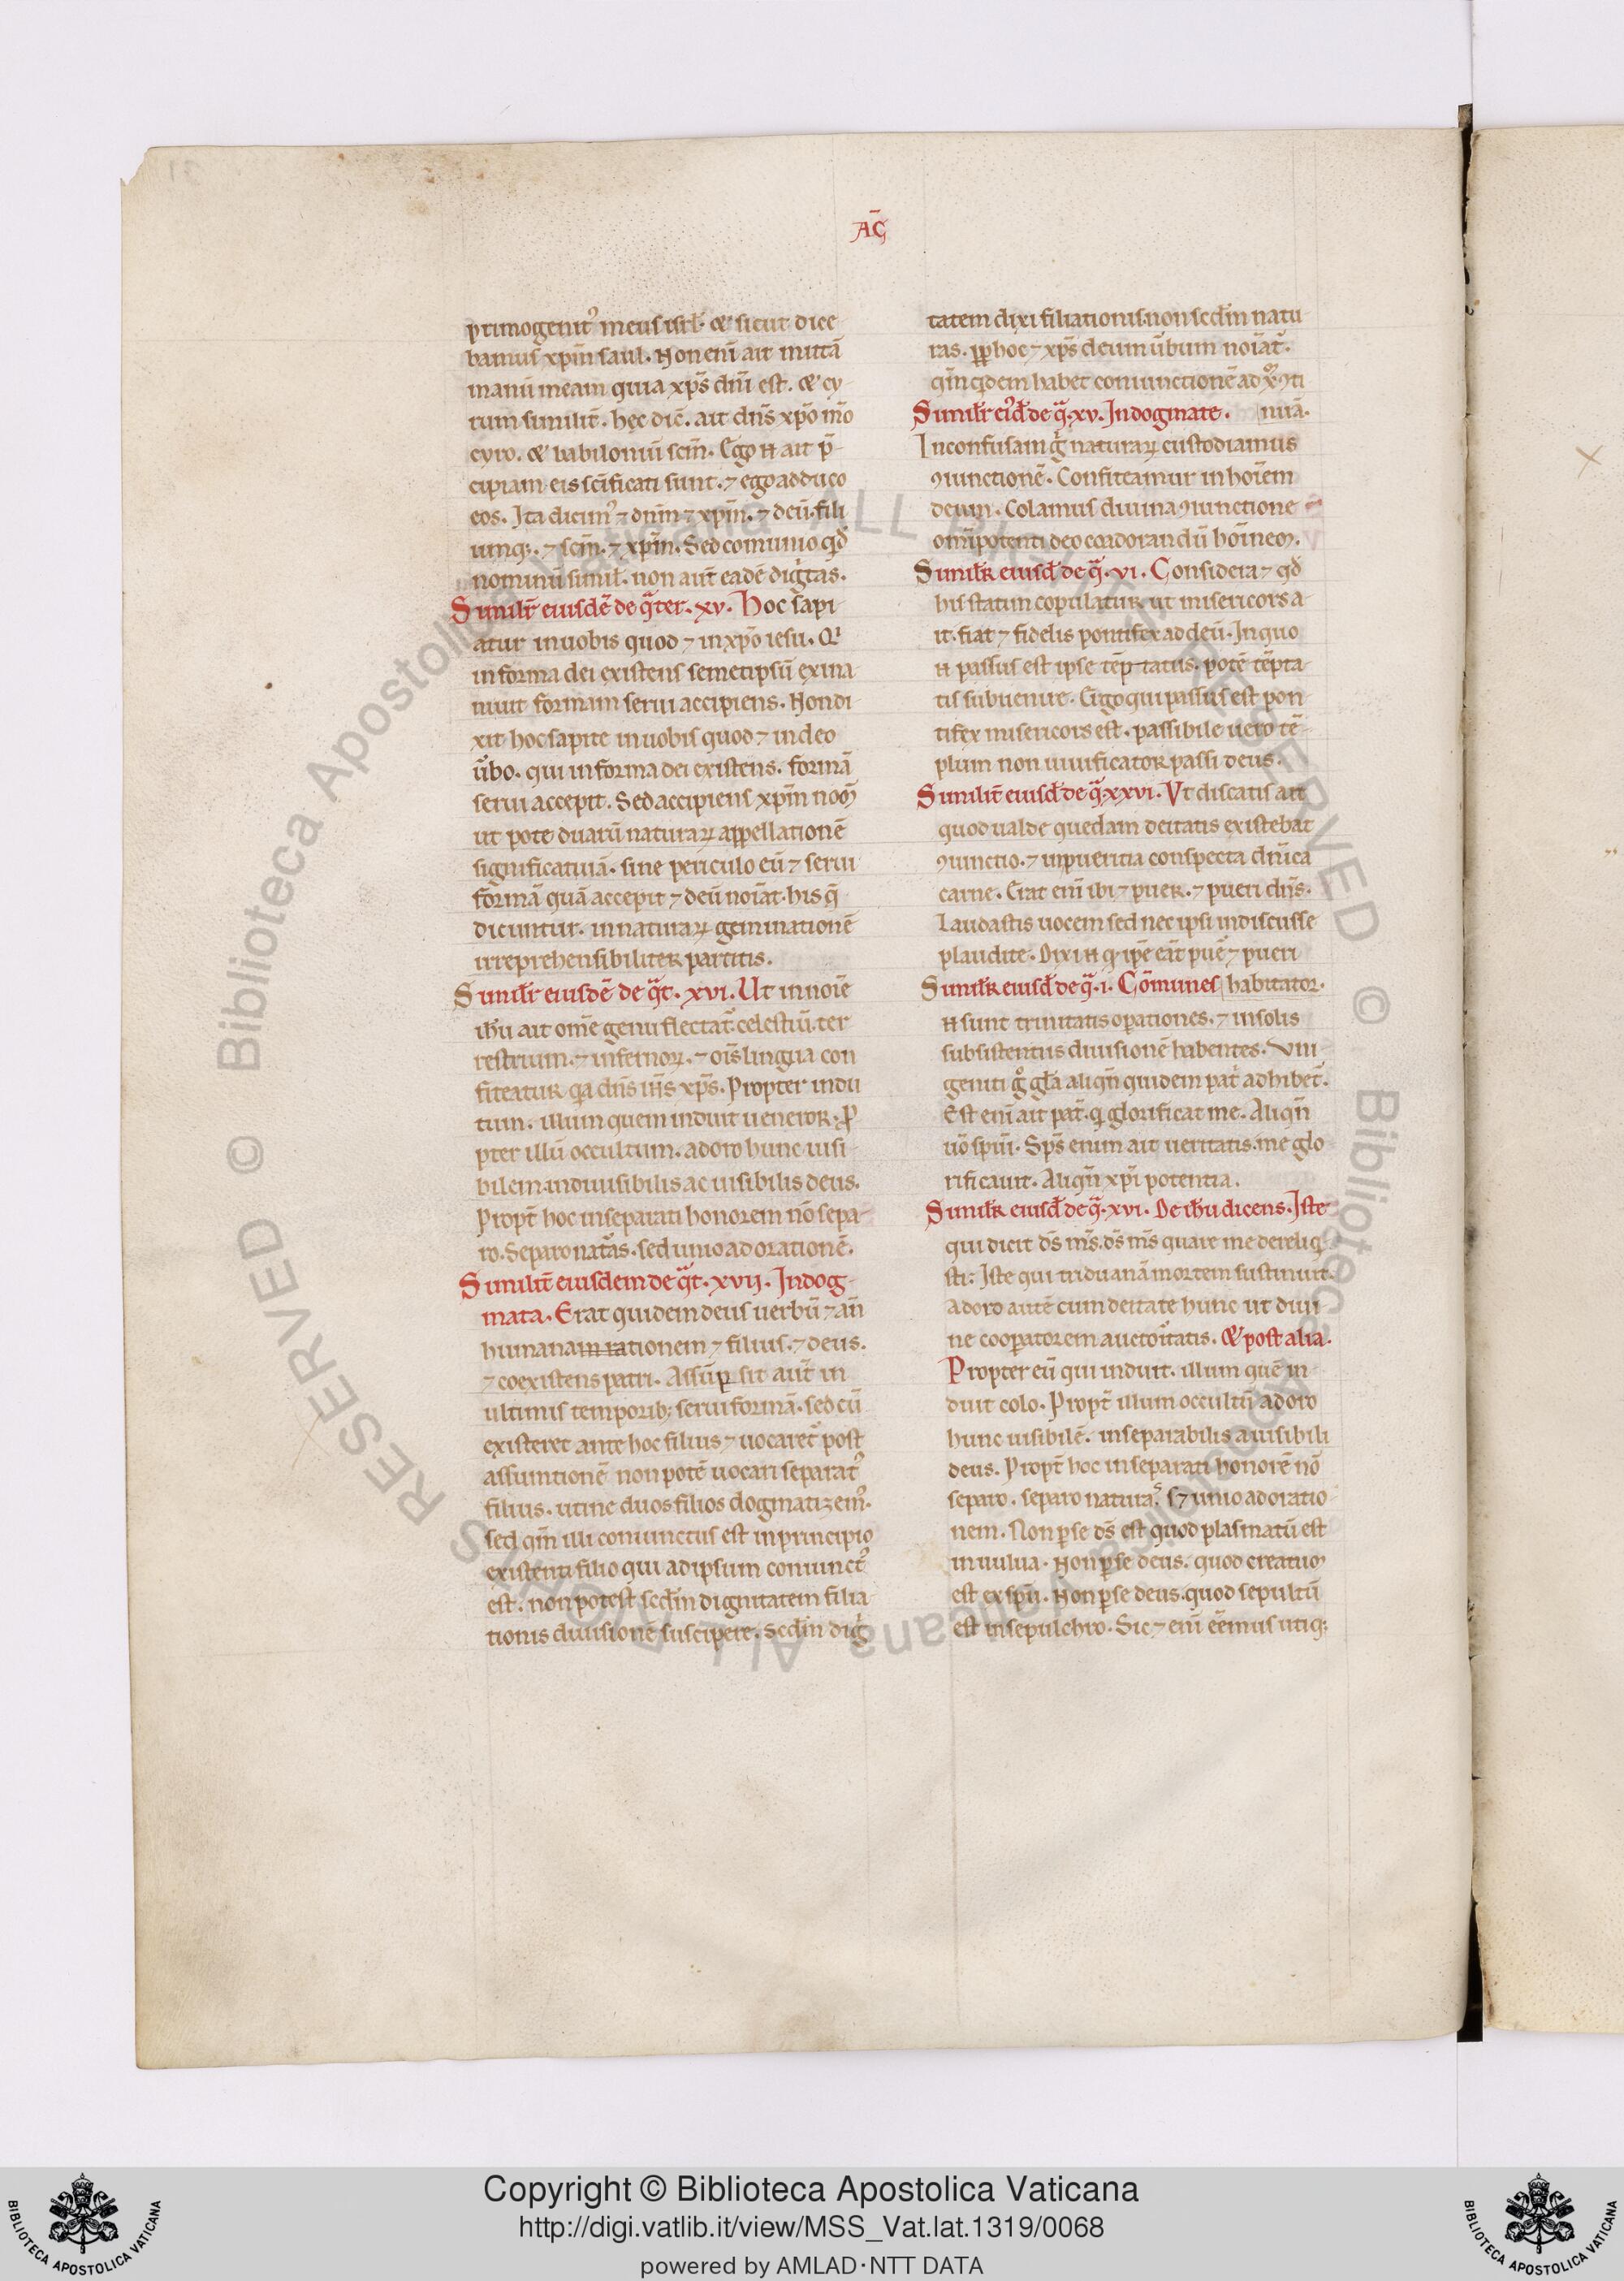 AC̄
primogenitꝰ meus isrl̄. & sicut dice
bamus xp̄m saul. Non eni ait mittā
manū meam quia xp̄s dn̄i est. & cy
rum similit̄. hęc dic̄. ait dn̄s xp̄o m̄o
cyro. & babiloniū scm̄. Ego n̄ ait p̄
cipiam eis scīficati sunt. ⁊ ego adduco
eos. Ita dicimꝰ ⁊ dn̄m ⁊ xp̄m. ⁊ deū. fili
umq;. ⁊ scm̄. ⁊ xp̄m. Sed comunio qd̄
nominū simil̄. non aut̄ eadē digtas.
Similit̄ eiusdē de q̄ter. xv. Hoc sapi
atur in uobis quod ⁊ in xp̄o iesu. Qi
in forma dei existens semetipsū exina
niuit formam serui accipiens. Non di
xit hoc sapite in uobis quod ⁊ in deo
ūbo. qui in forma dei existens. formā
serui accepit. Sed accipiens xp̄m nom̄
ut pote duarū naturaꝝ appellationē
significatiuā. sine periculo eū ⁊ serui
formā quā accepit ⁊ deū noīat. his q̄
dicuntur. in naturaꝝ geminationē
irreprehensibiliter partitis.
Similit̄ eiusdē de q̄t. xvi. Ut in noīe
ih̄u ait om̄e genu flectat̄. celestiū. ter
restrium. ⁊ infernoꝝ. ⁊ ois̄ lingua con
fiteatur qa dn̄s ih̄s xp̄s. Propter indu
tum. illum quem induit ueneror. ꝓ
pter illū occultum. adoro hunc uisi
bilem. indiuisibilis ac uisibilis deus.
Propt̄ hoc inseparati honorem nō sepa
ro. Separo nat̄as. sed unio adorationē.
Similit̄ eiusdem de q̄t. xvij. In dog
mata. Erat quidem deus uerbū ⁊ an̄
humanam rationem ⁊ filius. ⁊ deus.
⁊ coexistens patri. Assūpsit aut̄ in
ultimis temporib; serui formā. sed cū
existeret ante hoc filius ⁊ uocaret̄ post
assumtionē non potē uocari separatꝰ
filius. ut ne duos filios dogmatizemꝰ.
sed qm̄ illi coniunctus est in principio
existenti filio qui ad ipsum coniunctꝰ
est. non potest scd̄m dignitatem filia
tionis diuisionē suscipere. Scd̄m dig
tatem dixi filiationis. non scd̄m natu
ras. ꝓp hoc ⁊ xp̄s deum ūbum noīat̄.
qm̄ qdem habet coniunctionē ad xp̄m ꝯti
Simil̄r eiꝰd de q̄. xv. In dogmate. nuā.
Inconfusam g naturaꝝ custodiamus
ꝯiunctionē. Confiteamur in hoīem
deum. Colamus diuina ꝯiunctione
omīpotenti deo coadorandū hoīnem.
Simil̄r eiusd̄ de q̄. vi. Considera ⁊ qd̄
his statim copulatur ut misericors a
it. fiat ⁊ fidelis pontifex ad deū. In quo
n̄ passus est ipse tēptatus. potē tēpta
tis subuenire. Ergo qui passus est pon
tifex misericors est. passibile uero tē
plum non uiuificator passi deus.
Similit̄ eiusd̄ de q̄. xxvi. Ut discatis ait
quod ualde quedam deitatis existebat
ꝯiunctio. ⁊ in pueritia conspecta dn̄ica
carne. Erat eni ibi ⁊ puer. ⁊ pueri dn̄s.
Laudastis uocem sed nec ipsi indiscusse
plaudite. Dixi n̄ q ipē eāt puē ⁊ pueri
Simil̄r eiusd̄ de q̄. i. Cōmunes habitator.
n̄ sunt trinitatis oꝑationes. ⁊ in solis
subsistentiis diuisionē habentes. Vni
geniti g gl̄a aliqn̄ quidem pat̄ adhibet̄.
Est eni ait pat̄. q glorificat me. Aliqn̄
uō sp̄ui. Sp̄s enim ait ueritatis. me glo
rificauit. Aliqn̄ xp̄i potentia.
Simil̄r eiusd̄ de q̄. xvi. De ih̄u dicens. Iste
qui dicit ds̄ ms̄. ds̄ ms̄ quare me dereliq
sti: Iste qui triduanā mortem sustinuit.
Adoro autē cum deitate hunc ut diui
ne cooꝑatorem auctoītatis. & post alia.
Propter eū qui induit. illum quē in
duit colo. Propt̄ illum occultū adoro
hunc uisibilē. inseparabilis a uisibili
deus. Propt̄ hoc inseparati honorē nō
separo. separo naturas. s⁊ unio adoratio
nem. Non ꝑ se ds̄ est quod plasmatū est
in uulua. Non ꝑ se deus. quod creatum
est ex sp̄u. Non ꝑ se deus. quod sepultū
est in sepulchro. Sic ⁊ eni eēmus utiq;
Copyright © Biblioteca Apostolica Vaticana
http://digi.vatlib.it/view/MSS_Vat.lat.1319/0068
powered by AMLAD·NTT DATA
BIBLIOTECA APOSTOLICA VATICANA
BIBLIOTECA APOSTOLICA VATICANA